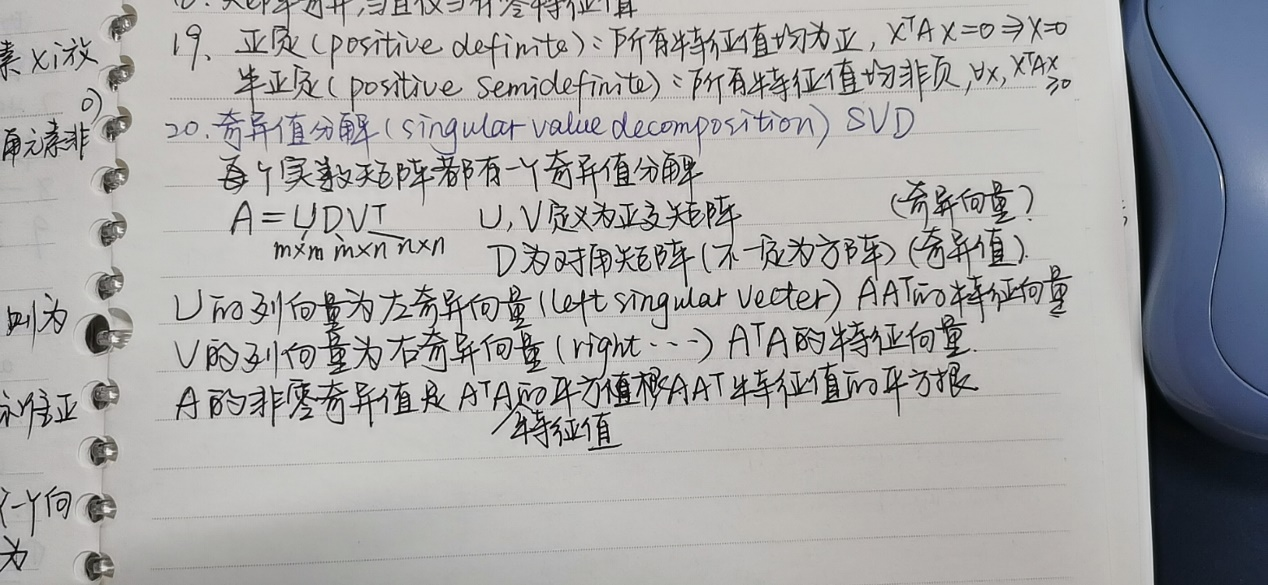 18. 矩阵奇异,当且仅当有零特征值
19. 正定(positive definite):所有特征值均为正, xᵀAx=0⇒x=0
半正定(positive semidefinite):所有特征值均非负,∀x, xᵀAx≥0
素xi放
0)
角元素非
20. 奇异值分解(singular value decomposition) SVD
每个实数矩阵都有一个奇异值分解
A=UDVᵀ U,V定义为正交矩阵 (奇异向量)
m×m m×n n×n D为对角矩阵(不一定为方阵)(奇异值).
则为
U的列向量为左奇异向量(left singular vecter) AAᵀ的特征向量
V的列向量为右奇异向量(right …) AᵀA的特征向量.
A的非零奇异值是AᵀA的平方值根 AAᵀ特征值的平方根
特征值
一个向
为